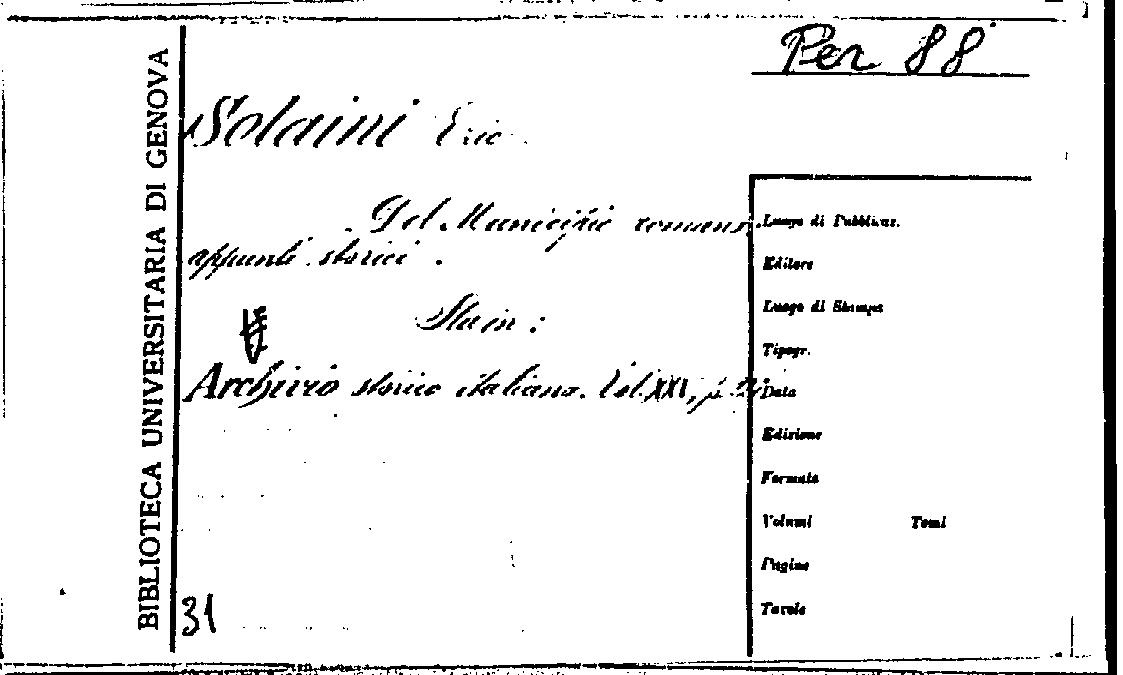 Per 88
BIBLIOTECA UNIVERSITARIA DI GENOVA
Solaini Eric
Del Municipio romano.
appunti storici.
Sta in:
Archivio storico italiano. Vol. XXI, p.
Luogo di Pubblicaz.
Editore
Luogo di Stampa
Tipogr.
Data
Edizione
Formato
Volumi Tomi
Pagine
Tavole
31